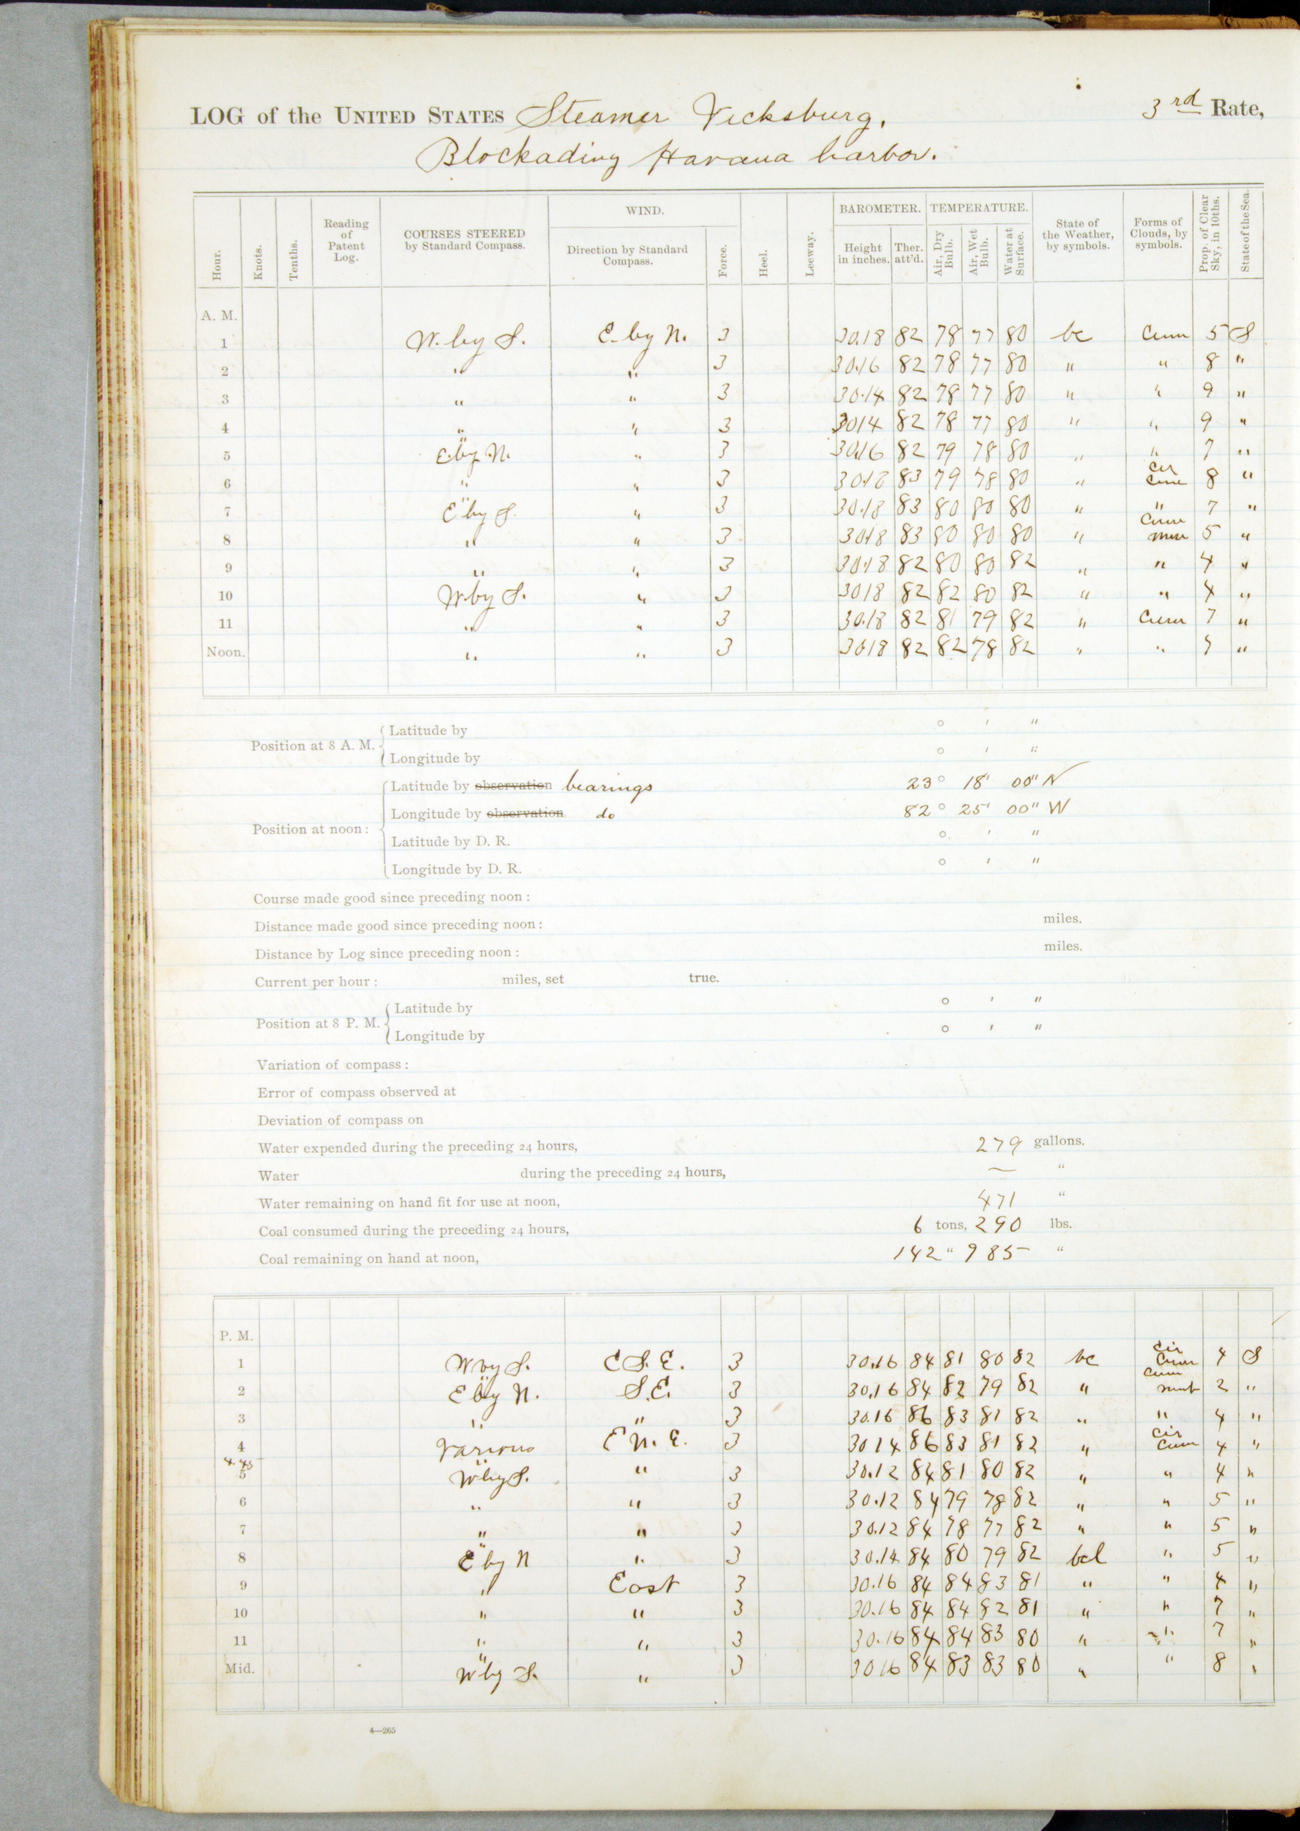 LOG of the UNITED STATES Steamer Vicksburg, 3rd Rate,
Blockading Havana harbor.
Hour. Knots. Tenths. Reading of Patent Log. COURSES STEERED by Standard Compass. WIND. Direction by Standard Compass. Force. Heel. Leeway. BAROMETER. Height in inches. Ther. att'd. TEMPERATURE. Air, Dry Bulb. Air, Wet Bulb. Water at Surface. State of the Weather, by symbols. Forms of Clouds, by symbols. Prop. of Clear Sky, in 10ths. State of the Sea.
A. M.
1 W. by S. E. by N. 3 30.18 82 78 77 80 bc Cum 5 S
2 " " 3 30.16 82 78 77 80 " " 8 "
3 " " 3 30.14 82 78 77 80 " " 9 "
4 " " 3 3014 82 78 77 80 " " 9 "
5 E. by N. " 3 30.16 82 79 78 80 " " 7 "
6 " " 3 30.18 83 79 78 80 " Cir Cum 8 "
7 E by S. " 3 30.18 83 80 80 80 " " 7 "
8 " " 3 30.18 83 80 80 80 " Cum 5 "
9 " " 3 30.18 82 80 80 82 " " 4 "
10 W by S. " 3 3018 82 82 80 82 " " 4 "
11 " " 3 30.18 82 81 79 82 " Cum 7 "
Noon. " " 3 3018 82 82 78 82 " " "
Position at 8 A. M. Latitude by ° ' "
Longitude by ° ' "
Position at noon: Latitude by observation bearings 23° 18' 00" N
Longitude by observation do 82° 25' 00" W
Latitude by D. R. ° ' "
Longitude by D. R. ° ' "
Course made good since preceding noon:
Distance made good since preceding noon: miles.
Distance by Log since preceding noon: miles.
Current per hour: miles, set true.
Position at 8 P. M. Latitude by ° ' "
Longitude by ° ' "
Variation of compass:
Error of compass observed at
Deviation of compass on
Water expended during the preceding 24 hours, 279 gallons.
Water during the preceding 24 hours, — "
Water remaining on hand fit for use at noon, 471 "
Coal consumed during the preceding 24 hours, 6 tons, 290 lbs.
Coal remaining on hand at noon, 142 " 985 "
P. M.
1 W by S. E S. E. 3 30.16 84 81 80 82 bc Cir Cum 4 S
2 E by N. S.E. 3 30.16 84 82 79 82 " Cum 2 "
3 " " 3 30.16 86 83 81 82 " " 4 "
4 Various E N. E. 3 3014 86 83 81 82 " Cir Cum 4 "
4.45
5 W by S. " 3 30.12 84 81 80 82 " " 4 "
6 " " 3 30.12 84 79 78 82 " " 5 "
7 " " 3 30.12 84 78 77 82 " " 5 "
8 E by N " 3 30.14 84 80 79 82 bcl " 5 "
9 " East 3 30.16 84 84 83 81 " " 4 "
10 " " 3 30.16 84 84 82 81 " " 7 "
11 " " 3 30.16 84 84 83 80 " " 7 "
Mid. W by S. " 3 3016 84 83 83 80 " " 8 "
4—265